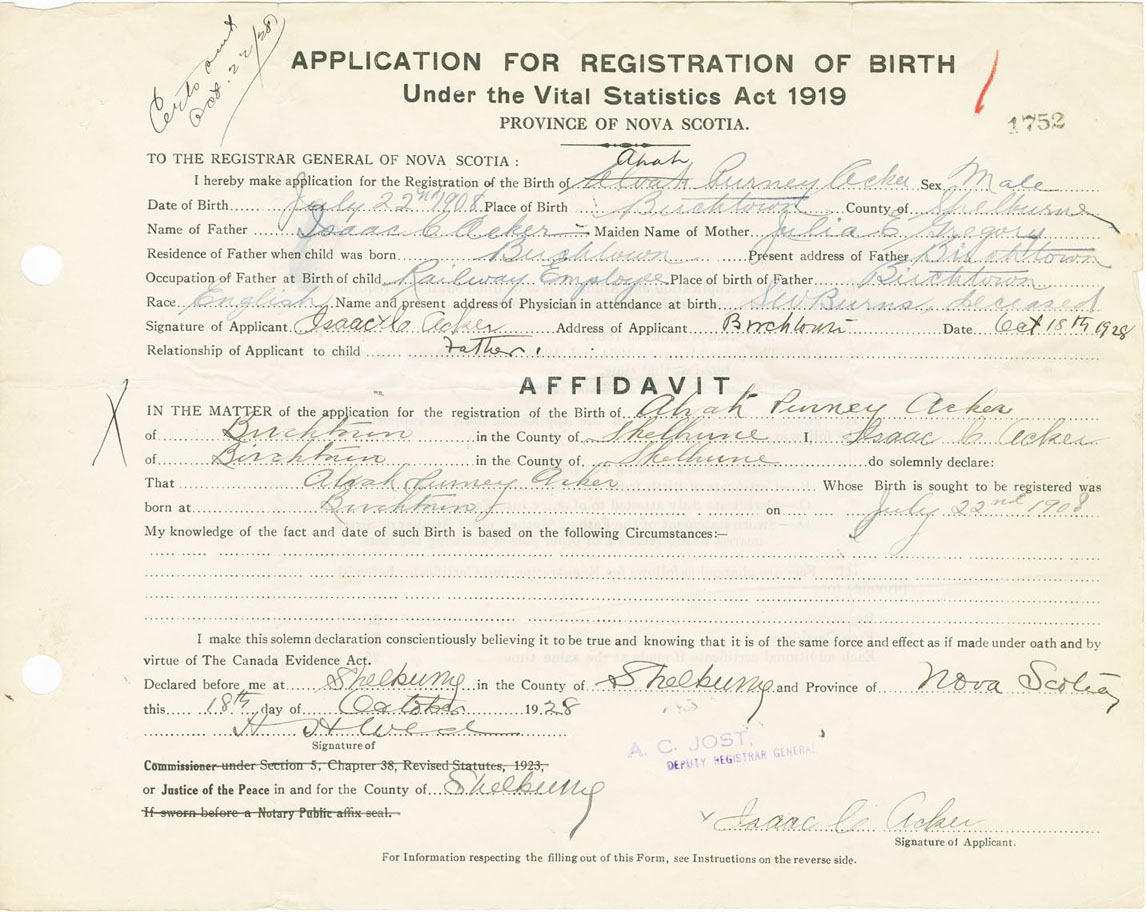 Certs sent
Oct. 22/28
APPLICATION FOR REGISTRATION OF BIRTH
Under the Vital Statistics Act 1919
PROVINCE OF NOVA SCOTIA.
1752
TO THE REGISTRAR GENERAL OF NOVA SCOTIA :
I hereby make application for the Registration of the Birth of Purney Acker Sex Male
Date of Birth July 22nd 1908 Place of Birth Birchtown County of Shelburne
Name of Father Isaac C Acker Maiden Name of Mother Julia E Gregory
Residence of Father when child was born Birchtown Present address of Father Birchtown
Occupation of Father at Birth of child Railway Employee Place of birth of Father Birchtown
Race English Name and present address of Physician in attendance at birth S W Burns, deceased
Signature of Applicant. Isaac C Acker Address of Applicant Birchtown Date Oct 18th 1928
Relationship of Applicant to child Father.
AFFIDAVIT
IN THE MATTER of the application for the registration of the Birth of Purney Acker
of Birchtown in the County of Shelburne I, Isaac C Acker
of Birchtown in the County of Shelburne do solemnly declare:
That Purney Acker Whose Birth is sought to be registered was
born at Birchtown on July 22nd 1908
My knowledge of the fact and date of such Birth is based on the following Circumstances:—
I make this solemn declaration conscientiously believing it to be true and knowing that it is of the same force and effect as if made under oath and by
virtue of The Canada Evidence Act.
Declared before me at Shelburne in the County of Shelburne and Province of Nova Scotia
this 18th day of October 1928
Signature of
A. C. JOST,
DEPUTY REGISTRAR GENERAL
Commissioner under Section 5, Chapter 38, Revised Statutes, 1923,
or Justice of the Peace in and for the County of Shelburne
If sworn before a Notary Public affix seal.
X Isaac C Acker
Signature of Applicant.
For Information respecting the filling out of this Form, see Instructions on the reverse side.